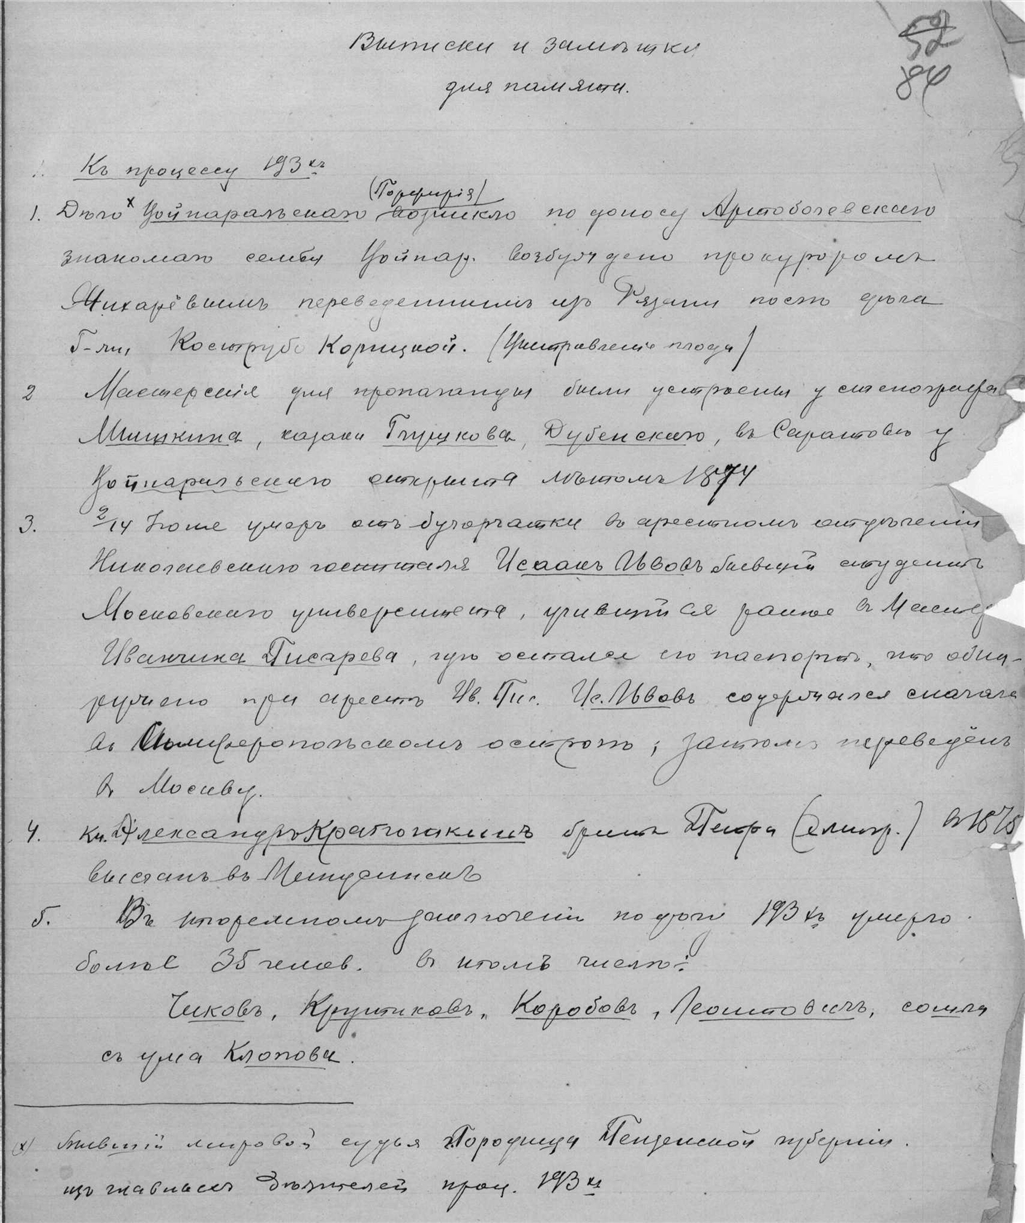 Выписки и замѣтки
для памяти.
52
84
Къ процессу 193хъ
(Порфирія)
1. Дѣло х Войнаральскаго возникло по доносу Артоболевскаго
знакомаго семьи Войнар. возбуждено прокуроромъ
Жихарёвымъ переведеннымъ изъ Рязани послѣ дѣла
Г-жи Кострубо Корицкой. (Вытравленіе плода)
2 Мастерскія для пропаганды были устроены у стенографа
Мышкина, казака Глушкова, Дубенскаго, въ Саратовѣ у
Войнаральского открыта лѣтомъ 1874
3. 2/14 Іюля умеръ отъ бугорчатки въ арестномъ отдѣленіи
Николаевскаго госпиталя Исаакъ Львовъ бывшій студентъ
Московскаго университета, учившійся ранѣе въ Мастер
Иванчина Писарева, гдѣ остался его паспортъ, что обна-
ружено при арестѣ Ив. Пис. Ис. Львовъ содержался сначала
въ Симферопольскомъ острогѣ; затѣмъ переведёнъ
въ Москву.
4. Кн. Александръ Крапоткинъ братъ Петра (эмигр.) въ 1876
высланъ въ Минусинскъ
5. Въ тюремномъ заключеніи по дѣлу 193хъ умерло
болѣе 35 челов. въ томъ числѣ:
Чиковъ, Крутиковъ, Коробовъ, Леонтовичъ, сошла
съ ума Клопова.
х) бывшій мировой судья Городища Пензенской губерніи.
изъ главныхъ дѣятелей проц. 193хъ